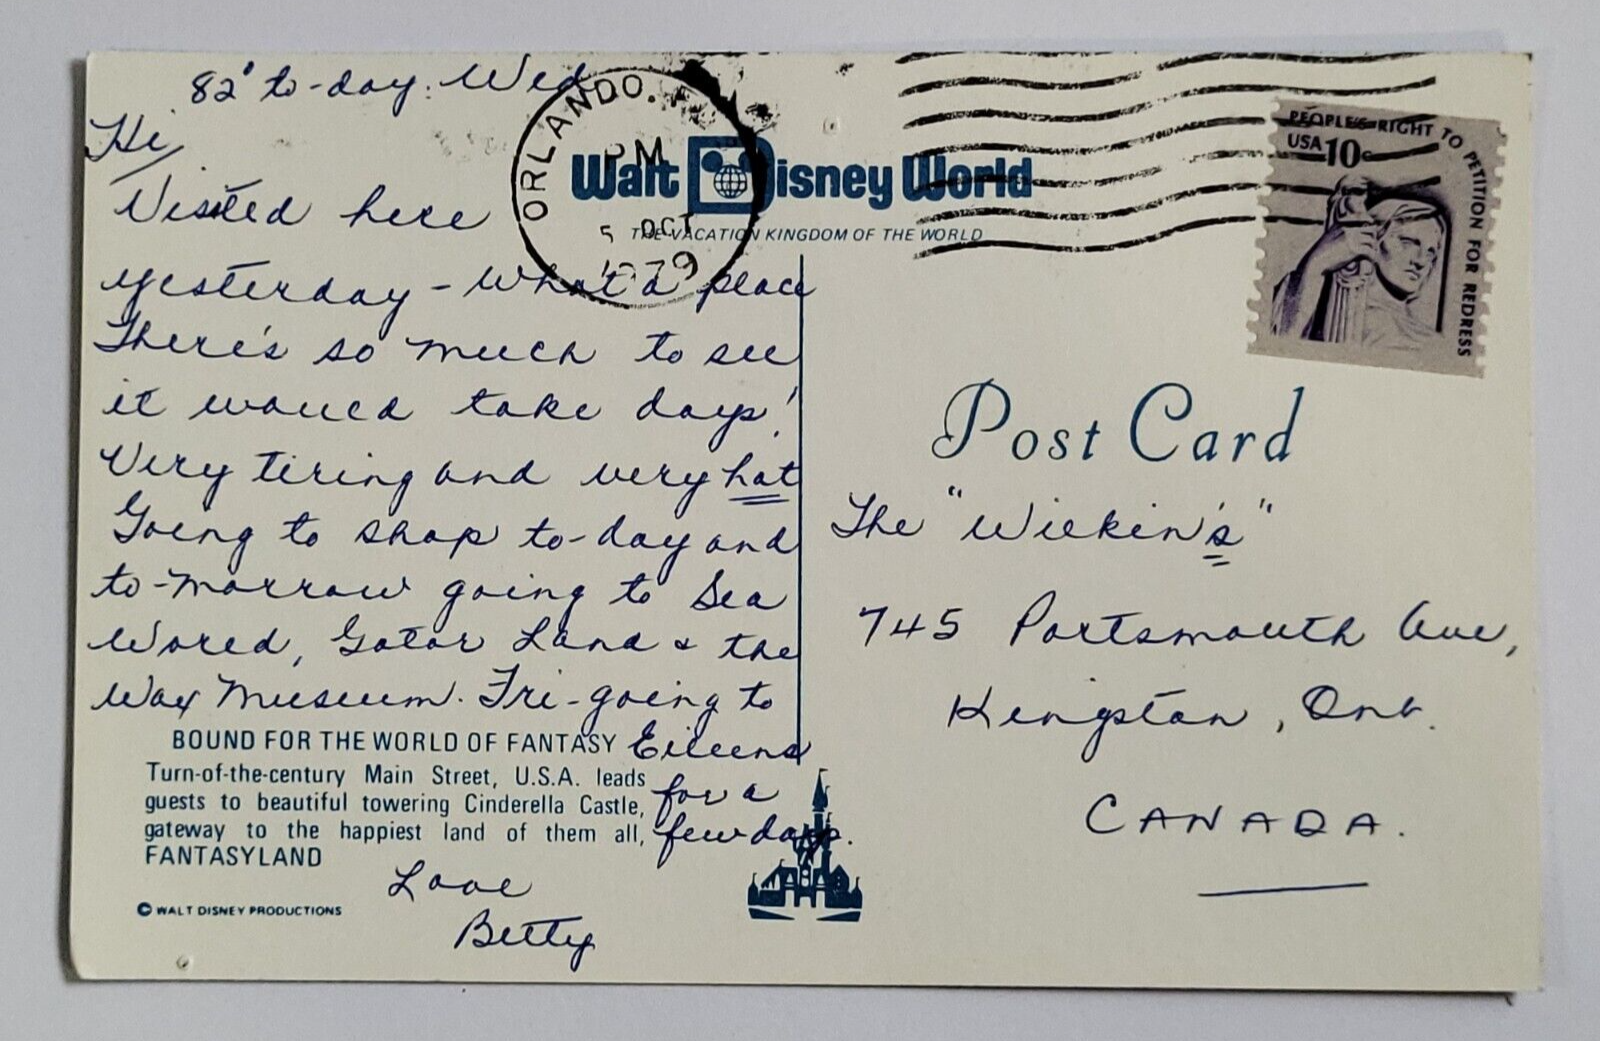 82° to-day. Wed
Hi,
Visited here
yesterday - what a place
There's so much to see
it would take days!
Very tiring and very hot
Going to shop to-day and
to-morrow going to Sea
World, Gator Land & the
Wax Museum. Fri-going to
Eileens
for a
few days.
Love
Betty
ORLANDO.
PM
5 OCT
1979
Walt Disney World
THE VACATION KINGDOM OF THE WORLD
BOUND FOR THE WORLD OF FANTASY
Turn-of-the-century Main Street, U.S.A. leads
guests to beautiful towering Cinderella Castle,
gateway to the happiest land of them all,
FANTASYLAND
© WALT DISNEY PRODUCTIONS
PEOPLE'S RIGHT TO PETITION FOR REDRESS
USA 10c
Post Card
The "Wilkin's"
745 Portsmouth Ave,
Kingston, Ont.
CANADA.